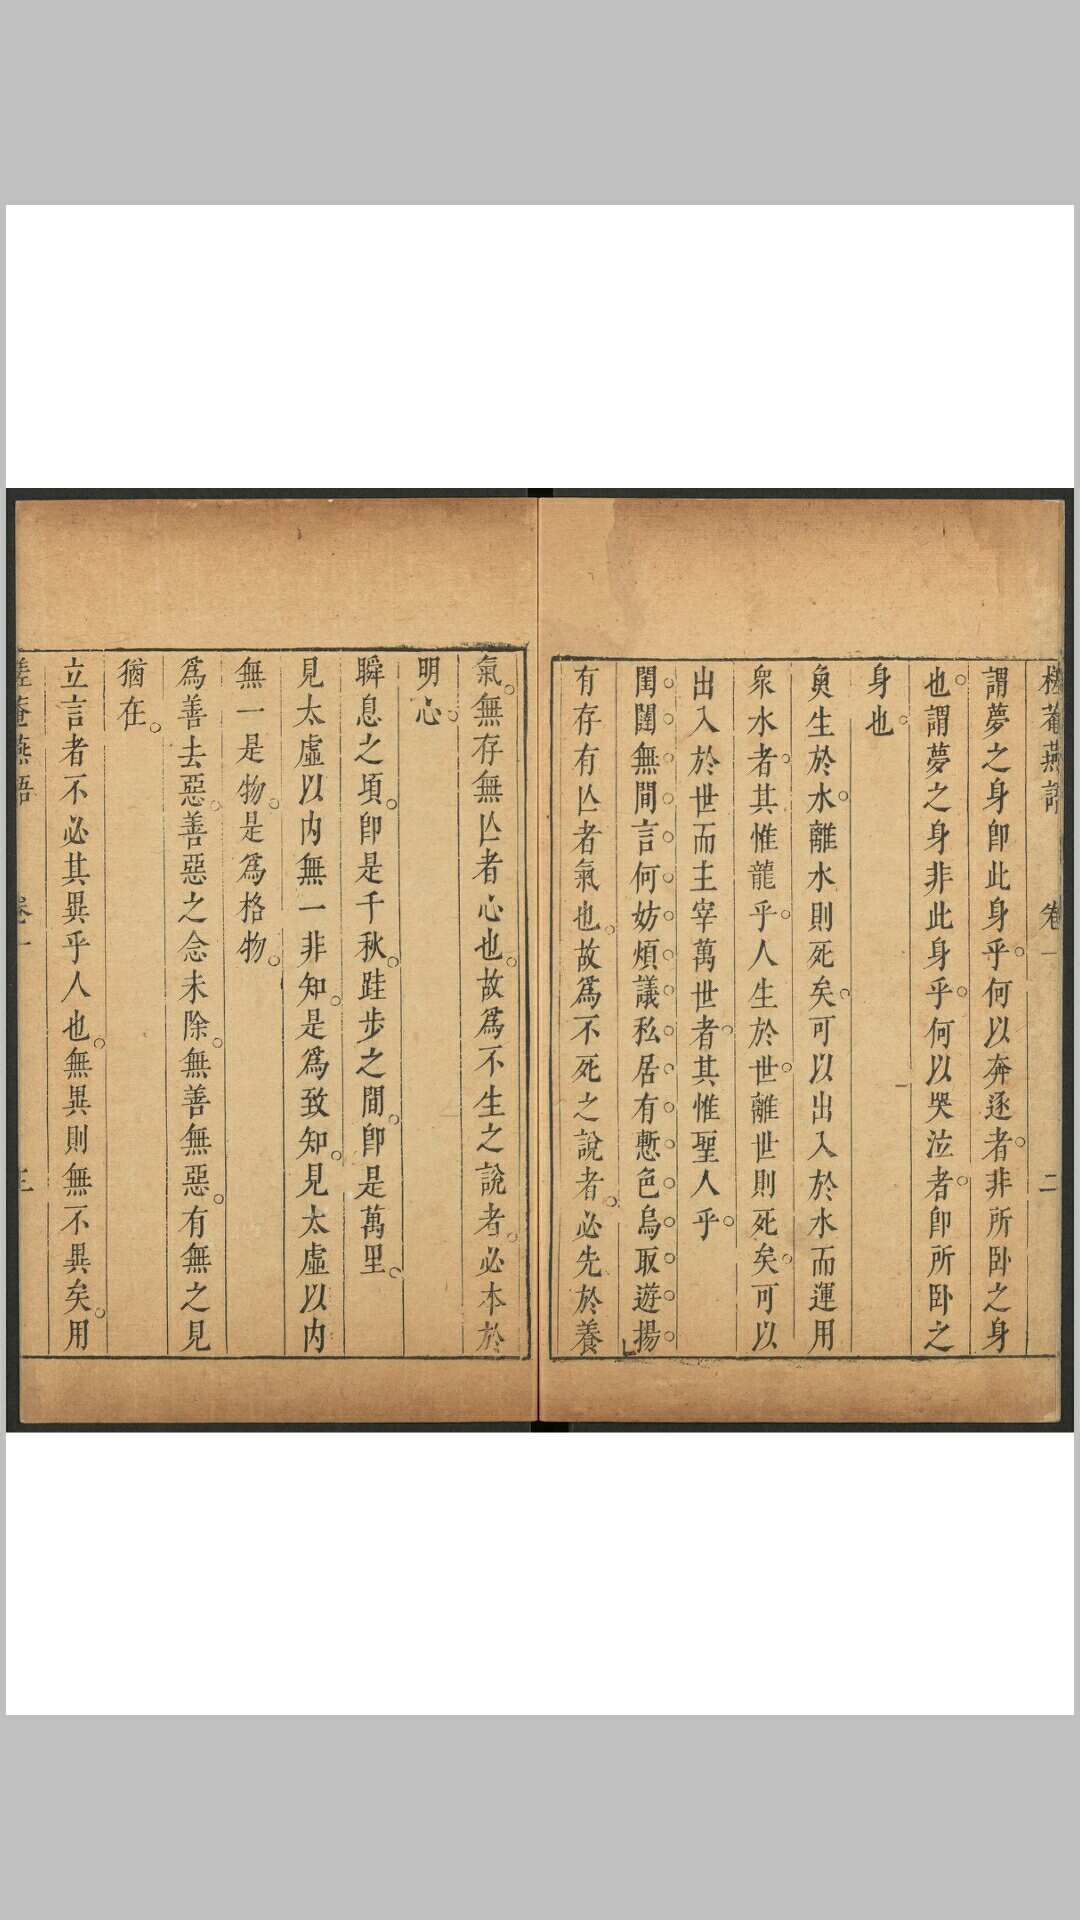 槎菴燕語 卷一 二
謂夢之身卽此身乎何以奔逐者非所臥之身
也謂夢之身非此身乎何以哭泣者卽所臥之
身也
魚生於水離水則死矣可以出入於水而運用
衆水者其惟龍乎人生於世離世則死矣可以
出入於世而主宰萬世者其惟聖人乎
閨闥無間言何妨煩議私居有慙色烏取遊揚
有存有亾者氣也故爲不死之說者必先於養
氣無存無亾者心也故爲不生之說者必本於
明心
瞬息之頃卽是千秋跬步之間卽是萬里
見太虛以內無一非知是爲致知見太虛以內
無一是物是爲格物
爲善去惡善惡之念未除無善無惡有無之見
猶在
立言者不必其異乎人也無異則無不異矣用
槎菴燕語 卷一 三